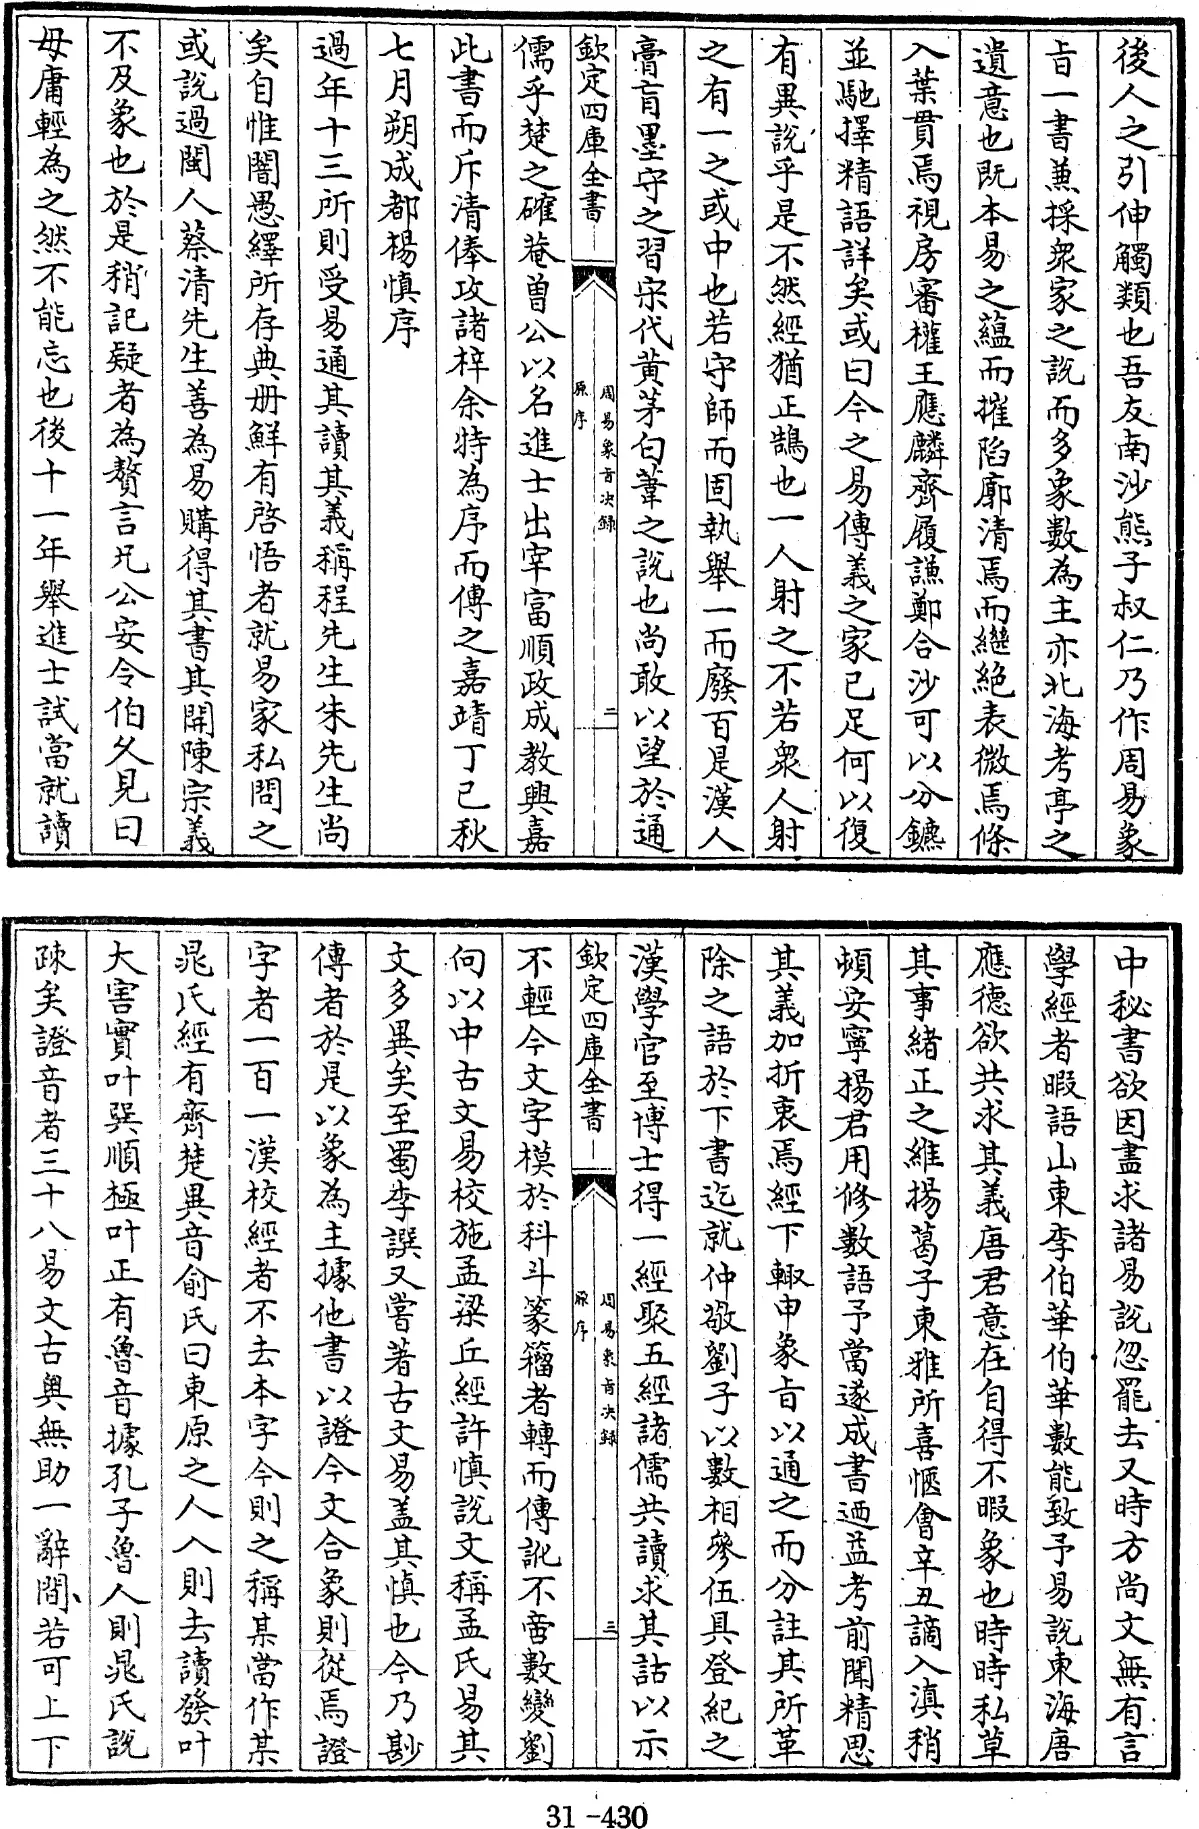 後人之引伸觸類也吾友南沙熊子叔仁乃作周易象
旨一書兼採衆家之説而多象數為主亦北海考亭之
遺意也既本易之藴而摧陷廓清焉而繼絶表微焉條
入葉貫焉視房審權王應麟齊履謙鄭合沙可以分鑣
並馳擇精語詳矣或曰今之易傳義之家已足何以復
有異説乎是不然經猶正鵠也一人射之不若衆人射
之有一之或中也若守師而固執舉一而廢百是漢人
膏肓墨守之習宋代黄茅白葦之説也尚敢以望於通
欽定四庫全書
周易象旨決録
原序
二
儒乎楚之確菴曽公以名進士出宰富順政成教興嘉
此書而斥清俸攻諸梓余特為序而傳之嘉靖丁已秋
七月朔成都楊慎序
過年十三所則受易通其讀其義稱程先生朱先生尚
矣自惟闇愚繹所存典册鮮有啓悟者就易家私問之
或説過閩人蔡清先生善為易購得其書其開陳宗義
不及象也於是稍記疑者為贅言兄公安令伯久見曰
毋庸輕為之然不能忘也後十一年舉進士試當就讀
中秘書欲因盡求諸易説忽罷去又時方尚文無有言
學經者暇語山東李伯華伯華數能致予易説東海唐
應德欲共求其義唐君意在自得不暇象也時時私草
其事緒正之維揚葛子東雅所喜愜會辛丑謫入滇稍
頓安寧楊君用修數語予當遂成書迺益考前聞精思
其義加折衷焉經下輙申象旨以通之而分註其所革
除之語於下書迄就仲敬劉子以數相參伍具登紀之
漢學官至博士得一經聚五經諸儒共讀求其詁以示
欽定四庫全書
周易象旨決録
原序
三
不輕今文字模於科斗篆籀者轉而傳訛不啻數變劉
向以中古文易校施孟梁丘經許慎説文稱孟氏易其
文多異矣至蜀李譔又嘗著古文易盖其慎也今乃尠
傳者於是以象為主據他書以證今文合象則從焉證
字者一百一漢校經者不去本字今則之稱某當作某
晁氏經有齊楚異音俞氏曰東原之人入則去讀發叶
大害實叶巽順極叶正有魯音據孔子魯人則晁氏説
疎矣證音者三十八易文古奥無助一辭間若可上下
31-430